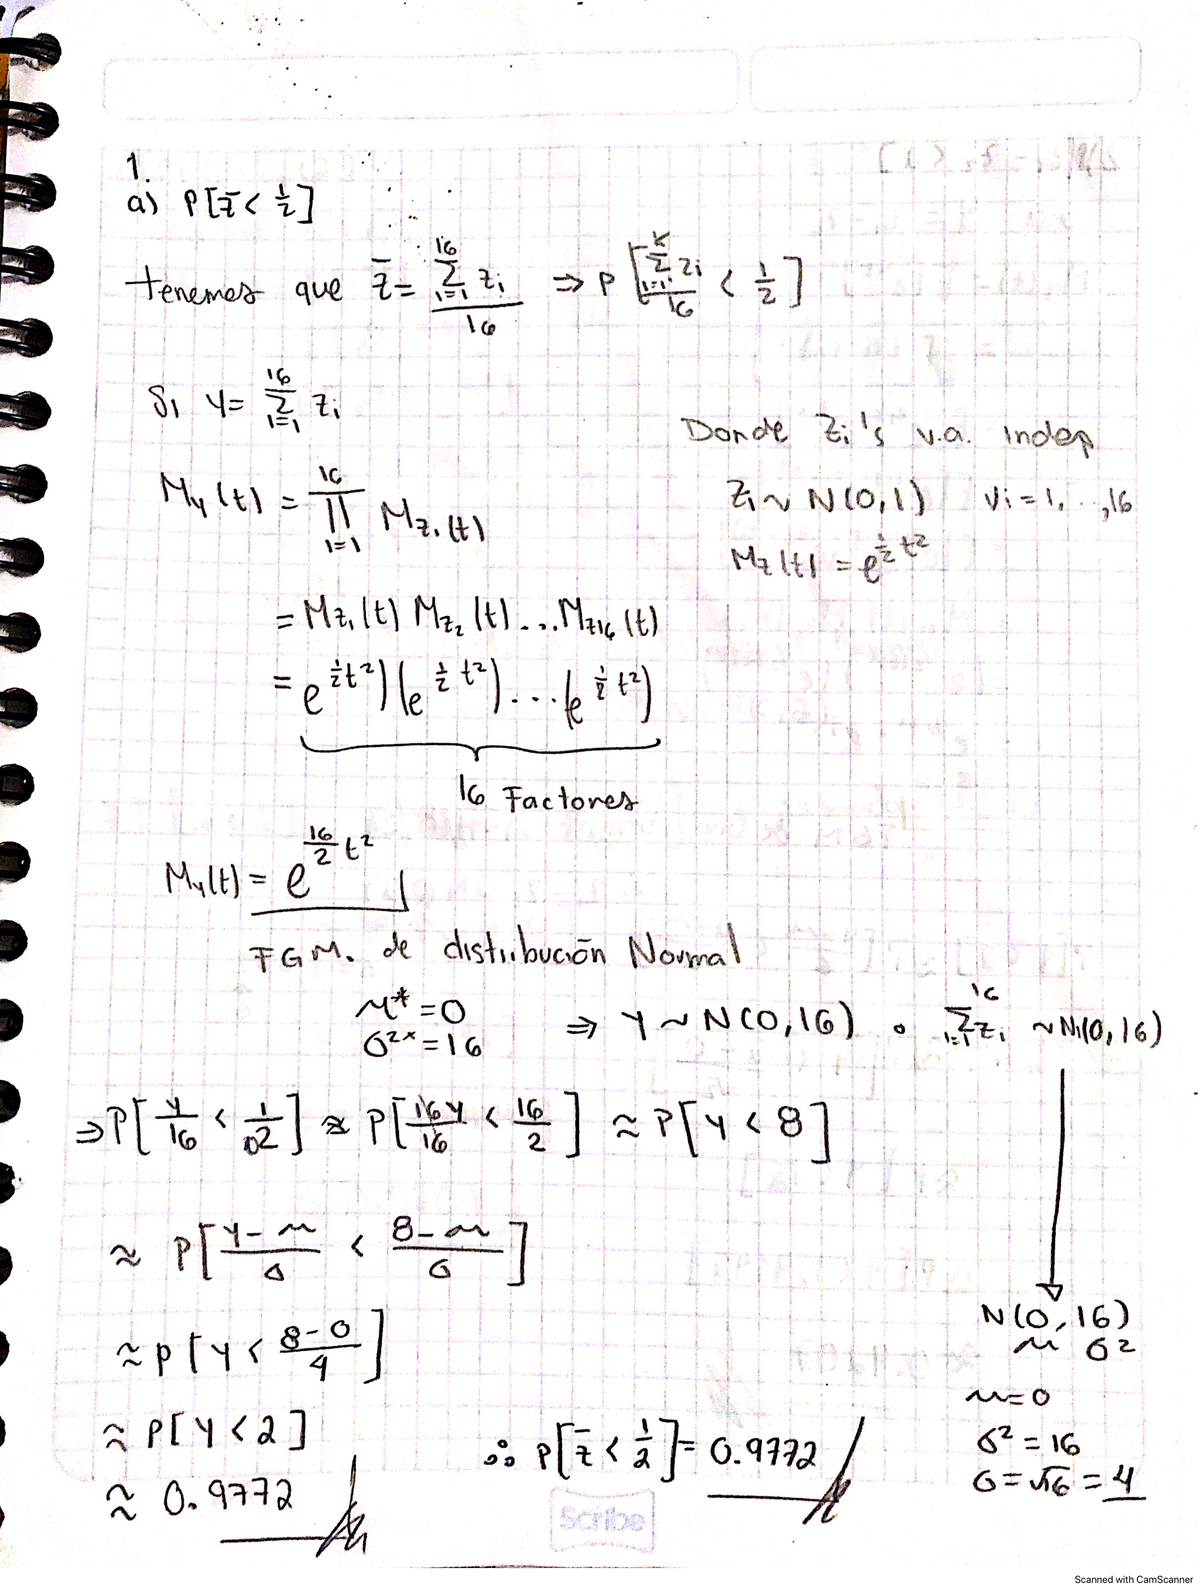 1.
a) P[z̄ < 1/2]
tenemos que z̄ = Σ_{i=1}^{16} zi / 16 ⇒ P[Σ_{i=1} zi / 16 < 1/2]
Si Y = Σ_{i=1}^{16} zi
Donde Zi's v.a. indep
My(t) = Π_{i=1}^{16} Mzi(t)
Zi ~ N(0,1) ∀i = 1, ..,16
Mz(t) = e^{1/2 t²}
= Mz1(t) Mz2(t)...Mz16(t)
= e^{1/2 t²})(e^{1/2 t²})...(e^{1/2 t²})
16 Factores
My(t) = e^{16/2 t²}
F G M. de distribución Normal
μ* = 0
σ²* = 16
⇒ Y ~ N(0,16) o Σ_{i=1}^{16} zi ~ N(0,16)
⇒ P[Y/16 < 1/2] ≈ P[16Y/16 < 16/2] ≈ P[Y < 8]
≈ P[Y-μ/σ < 8-μ/σ]
N(0,16)
μ σ²
≈ P[Y < 8-0/4]
μ=0
≈ P[Y < 2]
σ² = 16
∴ P[z̄ < 1/2] = 0.9772
σ = √16 = 4
≈ 0.9772
Scribe
Scanned with CamScanner